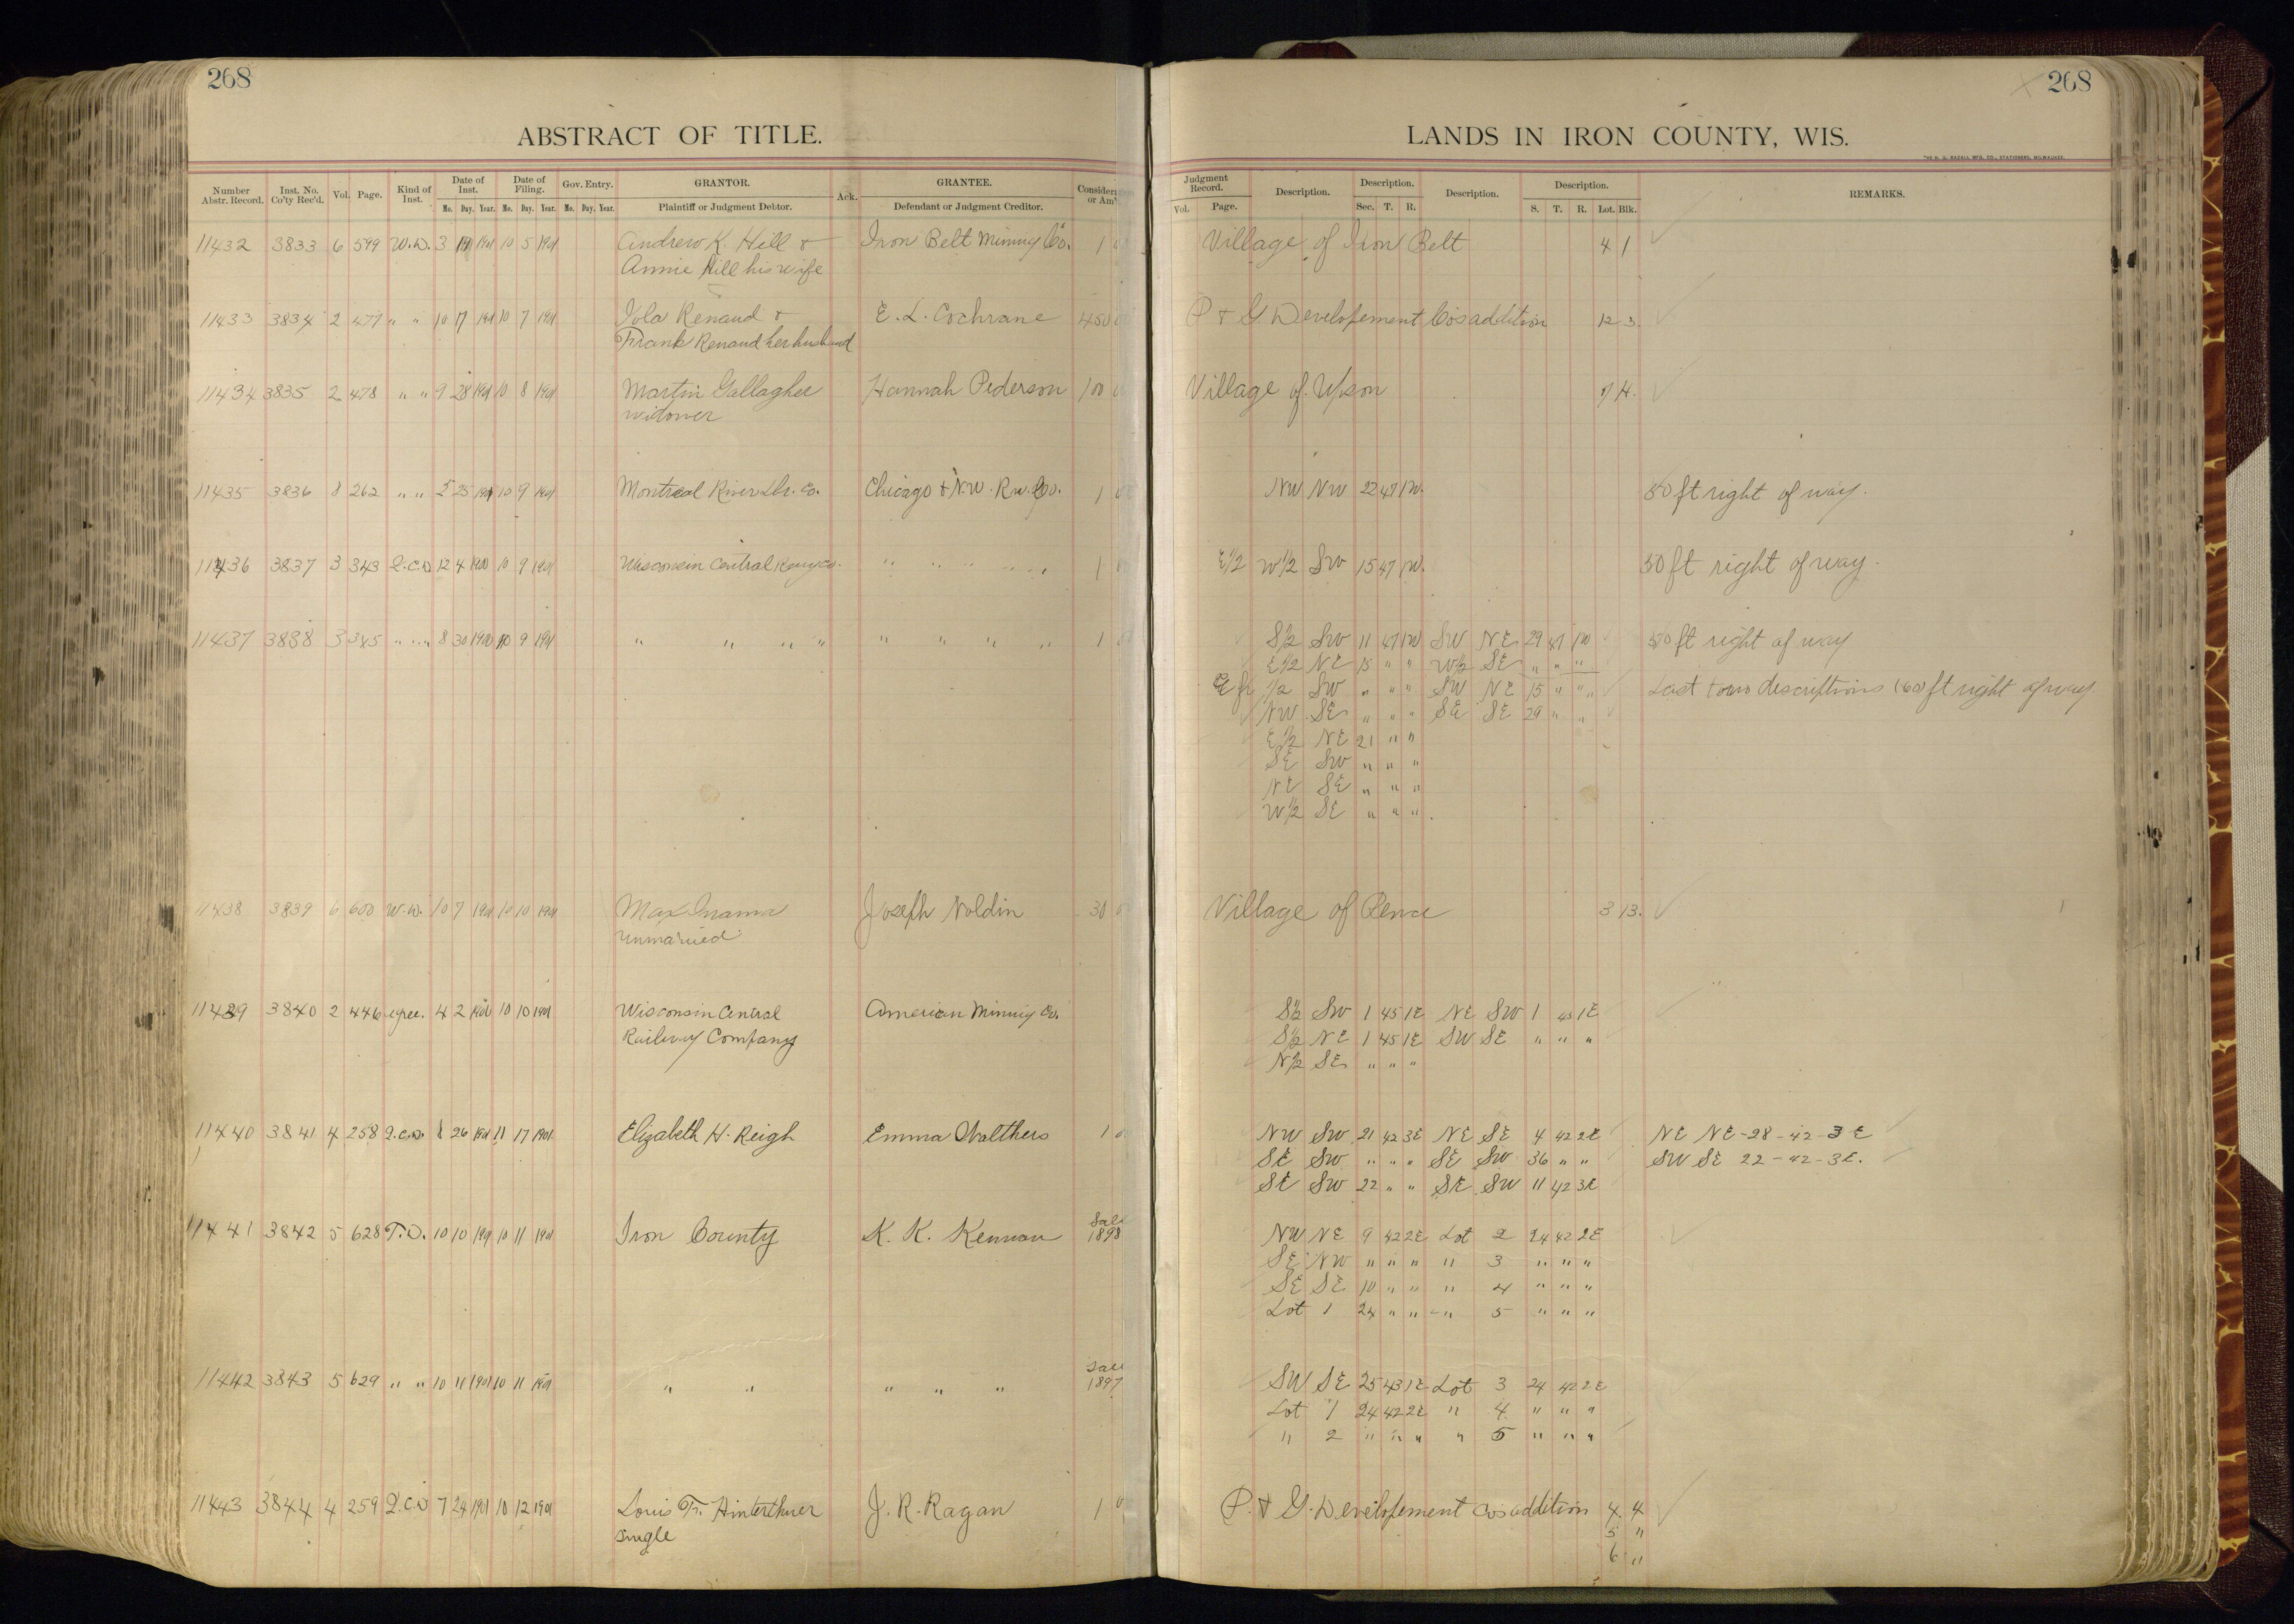 268
ABSTRACT OF TITLE.
Number Abstr. Record. Inst. No. Co'ty Rec'd. Vol. Page. Kind of Inst. Date of Inst. Mo. Day. Year. Date of Filing. Mo. Day. Year. Gov. Entry. Mo. Day. Year. GRANTOR. Plaintiff or Judgment Debtor. Ack. GRANTEE. Defendant or Judgment Creditor.
11432 3833 6 599 W.D. 3 1901 10 5 1901 Andrew K. Hill & Iron Belt Mining Co. 1
Annie Hill his wife
11433 3834 2 477 " " 10 7 1901 10 7 1901 Iola Renaud & E. L. Cochrane 450
Frank Renaud her husband
11434 3835 2 478 " " 9 28 1901 10 8 1901 Martin Gallagher Hannah Pederson 100
widower
11435 3836 8 262 " " 5 25 1901 10 9 1901 Montreal River Lbr. Co. Chicago & N.W. Rw. Co. 1
11436 3837 3 343 Q.C.D 12 4 1900 10 9 1901 Wisconsin Central Rwy Co. " " " " " 1
11437 3838 3 345 " " " 8 30 1900 10 9 1901 " " " " " " " " 1
11438 3839 6 600 W.D. 10 7 1901 10 10 1901 Max Inama Joseph Noldin 30
unmarried
11439 3840 2 446 agree. 4 2 1901 10 10 1901 Wisconsin Central American Mining Co.
Railway Company
11440 3841 4 258 Q.C.D. 8 26 1901 11 17 1901 Elizabeth H. Reigh Emma Walthers 1
11441 3842 5 628 T.D. 10 10 1901 10 11 1901 Iron County K. K. Kennan Sale
1898
11442 3843 5 629 " " 10 11 1901 10 11 1901 " " " " " Sale
1897
11443 3844 4 259 Q.C.D 7 24 1901 10 12 1901 Louis F. Hinterthuer J. R. Ragan 1
single
268
LANDS IN IRON COUNTY, WIS.
THE H. G. RAZALL MFG. CO., STATIONERS, MILWAUKEE.
Judgment Record. Vol. Page. Description. Description. Sec. T. R. Description. Description. S. T. R. Lot. Blk. REMARKS.
Village of Iron Belt 4 1
P & G. Developement Co's addition 12 3
Village of Upson 7 14.
NW NW 22 47 1W. 50 ft right of way.
E1/2 W1/2 SW 15 47 1W. 50 ft right of way.
S1/2 SW 11 47 1W SW NE 29 47 1W 50 ft right of way
E1/2 NE 15 " " W1/2 SE " " "
1/2 SW " " " SW NE 15 " " " Last two descriptions (60) ft right of way.
NW SE " " " SE SE 29 " "
E1/2 NE 21 " "
SE SW " " "
NE SE " " "
W1/2 SE " " "
Village of Pence 3 13.
S1/2 SW 1 45 1E NE SW 1 45 1E
S1/2 NE 1 45 1E SW SE " " "
N1/2 SE " " "
NW SW 21 42 3E NE SE 4 42 2E NE NE - 28 - 42 - 3E
SE SW " " " SE SW 36 " " SW SE 22 - 42 - 3E.
SE SW 22 " " SE SW 11 42 3E
NW NE 9 42 2E Lot 2 24 42 2E
SE NW " " " " 3 " " "
SE SE 10 " " " 4 " " "
Lot 1 24 " " " 5 " " "
SW SE 25 43 1E Lot 3 24 42 2E
Lot 1 24 42 2E " 4 " " "
" 2 " " " " 5 " " "
P. & G. Developement Co's addition 4. 4
5 "
6 "